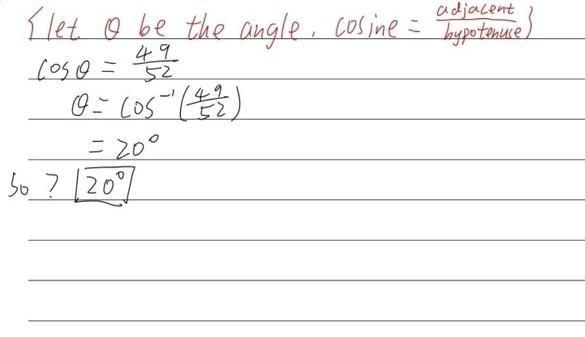 {let θ be the angle. cosine = adjacent/hypotenuse}
cosθ = 49/52
θ = cos⁻¹(49/52)
= 20°
So ? 20°